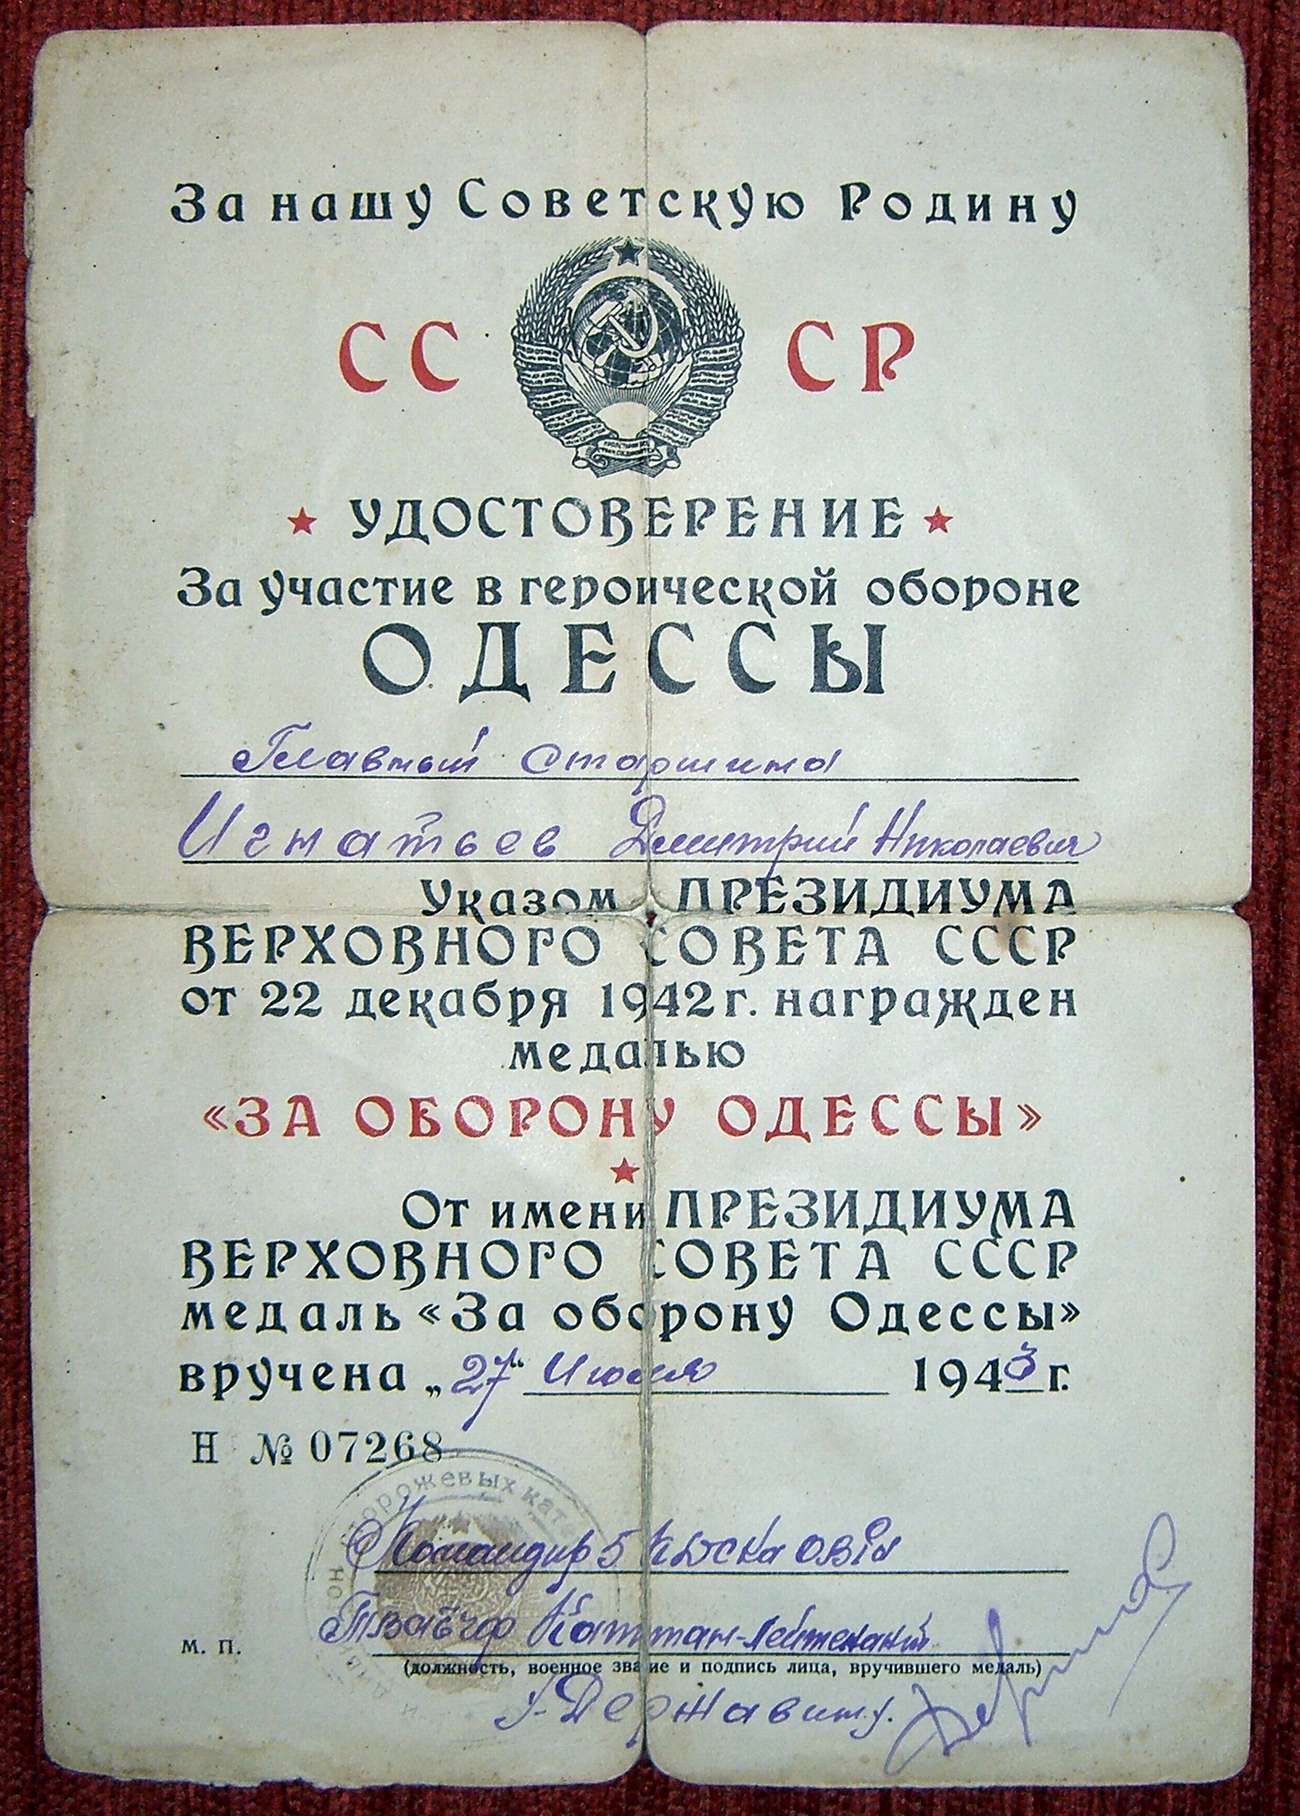 За нашу Советскую Родину
СС СР
УДОСТОВЕРЕНИЕ
За участие в героической обороне
ОДЕССЫ
Главный старшина
Игнатьев Дмитрий Николаевич
Указом ПРЕЗИДИУМА
ВЕРХОВНОГО СОВЕТА СССР
от 22 декабря 1942 г. награжден
медалью
«ЗА ОБОРОНУ ОДЕССЫ»
От имени ПРЕЗИДИУМА
ВЕРХОВНОГО СОВЕТА СССР
медаль «За оборону Одессы»
вручена „27“ Июля 1943 г.
Н № 07268
орожевых кат
Командир 5
Капитан-Лейтенант
М. П.
(должность, военное звание и подпись лица, вручившего медаль)
Державин